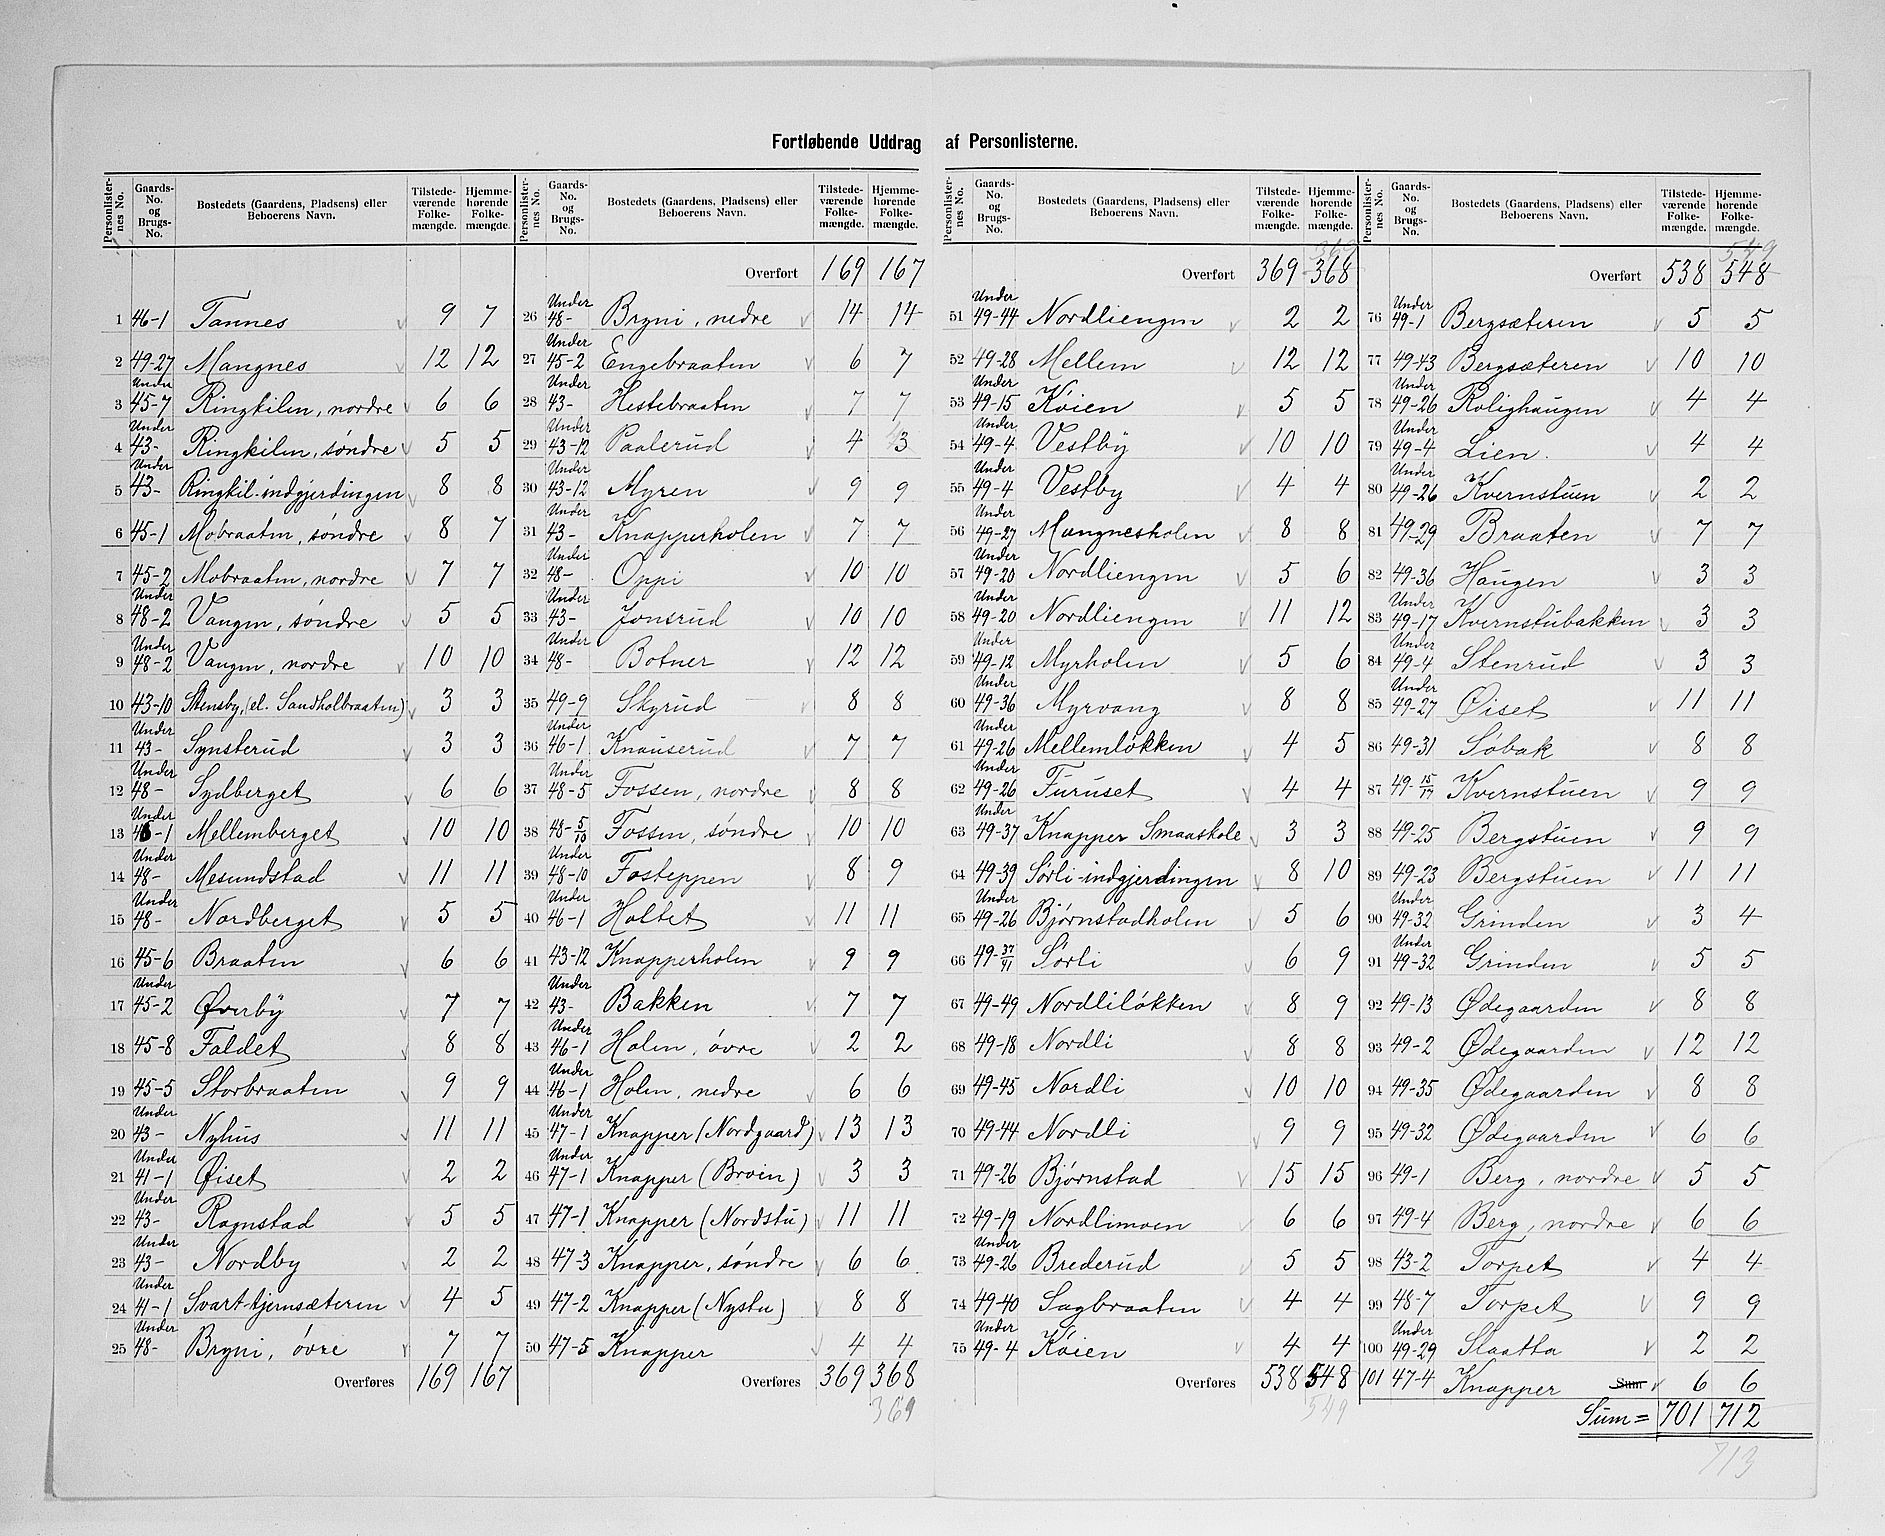 Fortløbende Uddrag af Personlisterne.
Personlister-nes No. | Gaards-No. og Brugs-No. | Bostedets (Gaardens, Pladsens) eller Beboerens Navn. | Tilstede-værende Folke-mængde. | Hjemme-hørende Folke-mængde.
1 46-1 Tannes 9 7
2 49-27 Mangnes 12 12
3 Under 45-7 Ringkilen, nordre 6 6
4 Under 43- Ringkilen, søndre 5 5
5 Under 43- Ringkil-indgjerdingen 8 8
6 45-1 Mobraaten, søndre 8 7
7 45-2 Mobraaten, nordre 7 7
8 Under 48-2 Vangen, søndre 5 5
9 Under 48-2 Vangen, nordre 10 10
10 43-10 Stensby, (el. Sandholbraaten) 3 3
11 Under 43- Synsterud 3 3
12 Under 48- Sydberget 6 6
13 Under 46-1 Mellemberget 10 10
14 Under 48- Mesundstad 11 11
15 Under 48- Nordberget 5 5
16 45-6 Braaten 6 6
17 Under 45-2 Øverby 7 7
18 45-8 Faldet 8 8
19 45-5 Storbraaten 9 9
20 Under 43- Nyhus 11 11
21 Under 41-1 Øiset 2 2
22 Under 43- Ragnstad 5 5
23 Under 43- Nordby 2 2
24 Under 41-1 Svart-tjernsæteren 4 5
25 Under 48- Bryni, øvre 7 7
Overføres 169 167
Personlister-nes No. | Gaards-No. og Brugs-No. | Bostedets (Gaardens, Pladsens) eller Beboerens Navn. | Tilstede-værende Folke-mængde. | Hjemme-hørende Folke-mængde.
Overført 169 167
26 Under 48- Bryni, nedre 14 14
27 Under 45-2 Engebraaten 6 7
28 Under 43- Hestebraaten 7 7
29 Under 43-12 Paalerud 4 3
30 Under 43-12 Myren 9 9
31 Under 43- Knapperholen 7 7
32 Under 48- Oppi 10 10
33 Under 43- Jonsrud 10 10
34 Under 48- Botner 12 12
35 49-9 Skyrud 8 8
36 Under 46-1 Knauserud 7 7
37 Under 48-5 Fossen, nordre 8 8
38 48-5/13 Fossen, søndre 10 10
39 Under 48-10 Fosteppen 8 9
40 Under 46-1 Holtet 11 11
41 43-12 Knapperholen 9 9
42 Under 43- Bakken 7 7
43 Under 46-1 Holen, øvre 2 2
44 Under 46-1 Holen, nedre 6 6
45 Under 47-1 Knapper (Nordgaard) 13 13
46 Under 47-1 Knapper (Broin) 3 3
47 47-1 Knapper (Nordstu) 11 11
48 47-3 Knapper, søndre 6 6
49 47-2 Knapper (Nystu) 8 8
50 47-5 Knapper 4 4
Overføres 369 368
369
Personlister-nes No. | Gaards-No. og Brugs-No. | Bostedets (Gaardens, Pladsens) eller Beboerens Navn. | Tilstede-værende Folke-mængde. | Hjemme-hørende Folke-mængde.
369
Overført 369 368
51 Under 49-44 Nordliengen 2 2
52 49-28 Mellem 12 12
53 Under 49-15 Køien 5 5
54 Under 49-4 Vestby 10 10
55 Under 49-4 Vestby 4 4
56 Under 49-27 Mangnesholen 8 8
57 Under 49-20 Nordliengen 5 6
58 Under 49-20 Nordliengen 11 12
59 Under 49-12 Myrholen 5 6
60 Under 49-36 Myrvang 8 8
61 Under 49-26 Mellemløkken 4 5
62 Under 49-26 Furuset 4 4
63 Under 49-37 Knapper Smaaskole 3 3
64 49-39 Sørli-indgjerdingen 8 10
65 Under 49-26 Bjørnstadholen 5 6
66 49-37/41 Sørli 6 9
67 49-49 Nordliløkken 8 9
68 49-18 Nordli 8 8
69 49-45 Nordli 10 10
70 49-44 Nordli 9 9
71 49-26 Bjørnstad 15 15
72 49-19 Nordlimoen 6 6
73 Under 49-26 Brederud 5 5
74 49-40 Sagbraaten 4 4
75 Under 49-4 Køien 4 4
Overføres 538 548
549
Personlister-nes No. | Gaards-No. og Brugs-No. | Bostedets (Gaardens, Pladsens) eller Beboerens Navn. | Tilstede-værende Folke-mængde. | Hjemme-hørende Folke-mængde.
549
Overført 538 548
76 Under 49-1 Bergsæteren 5 5
77 49-43 Bergsæteren 10 10
78 Under 49-26 Rolighaugen 4 4
79 Under 49-4 Lien. 4 4
80 Under 49-26 Kvernstuen 2 2
81 49-29 Braaten 7 7
82 49-36 Haugen 3 3
83 Under 49-17 Kvernstubakken 3 3
84 Under 49-4 Stenrud 3 3
85 Under 49-27 Øiset 11 11
86 49-31 Søbak 8 8
87 49-15/17 Kvernstuen 9 9
88 49-25 Bergstuen 9 9
89 49-23 Bergstuen 11 11
90 Under 49-32 Grinden 3 4
91 Under 49-32 Grinden 5 5
92 49-13 Ødegaarden 8 8
93 49-2 Ødegaarden 12 12
94 49-35 Ødegaarden 8 8
95 49-32 Ødegaarden 6 6
96 49-1 Berg, nordre 5 5
97 49-4 Berg, nordre 6 6
98 43-2 Torpet 4 4
99 48-7 Torpet 9 9
100 Under 49-29 Slaatta 2 2
101 47-4 Knapper Sum 6 6
Sum = 701 712
713